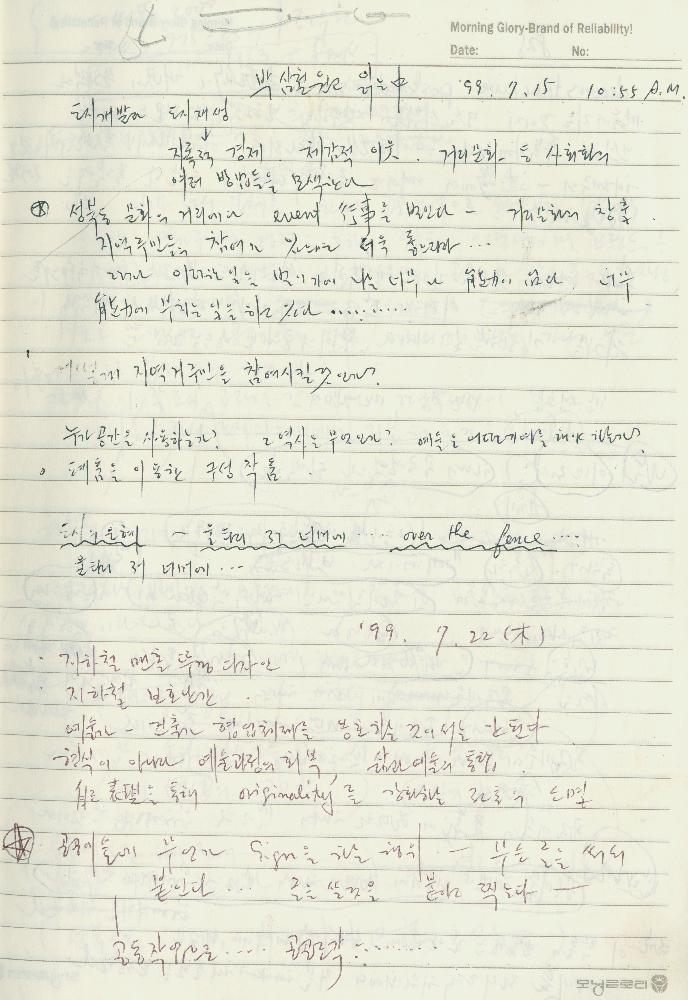 Morning Glory-Brand of Reliability!
Date: No:
박삼철원고 읽는 中 '99. 7. 15 10:55 A.M.
도시개발과 도시재생
지속적 경제. 체감적 이웃. 거리문화 등 사회화의
여러 방법들을 모색한다
성북동 문화의 거리에다 event 行事를 벌인다 - 거리문화의 창출.
지역주민들의 참여가 있다면 더욱 좋으리라 ...
그러나 이러한 일을 벌이기에 나는 너무나 能力이 없다. 너무
能力에 부치는 일을 하고 있다 ..........
어떻게 지역거주민을 참여시킬 것인가?
누가 공간을 사용하는가? 그 역사는 무엇인가? 예술은 어떠한 를 해야 하는가?
폐품을 이용한 구성 작품.
울타리 저 너머에 .... over the fence ....
울타리 저 너머에 ...
'99. 7. 22 (木)
· 지하철 맨홀 뚜껑 디자인
· 지하철 보호난간.
예술가 - 건축가 협업체제를 옹호하는 것이어서는 안된다
형식이 아니라 예술과정의 회복, 삶과 예술의 통합.
自己 表現을 통해 originality를 강화하는
공공미술에 무언가 Sign을 하는 행위 - 부슨 글을 써서
붙인다 ... 글을 쓸 것을 붙이고 찍는다 —
공동작업으로 ..... 공모조각 ..........
모닝글로리